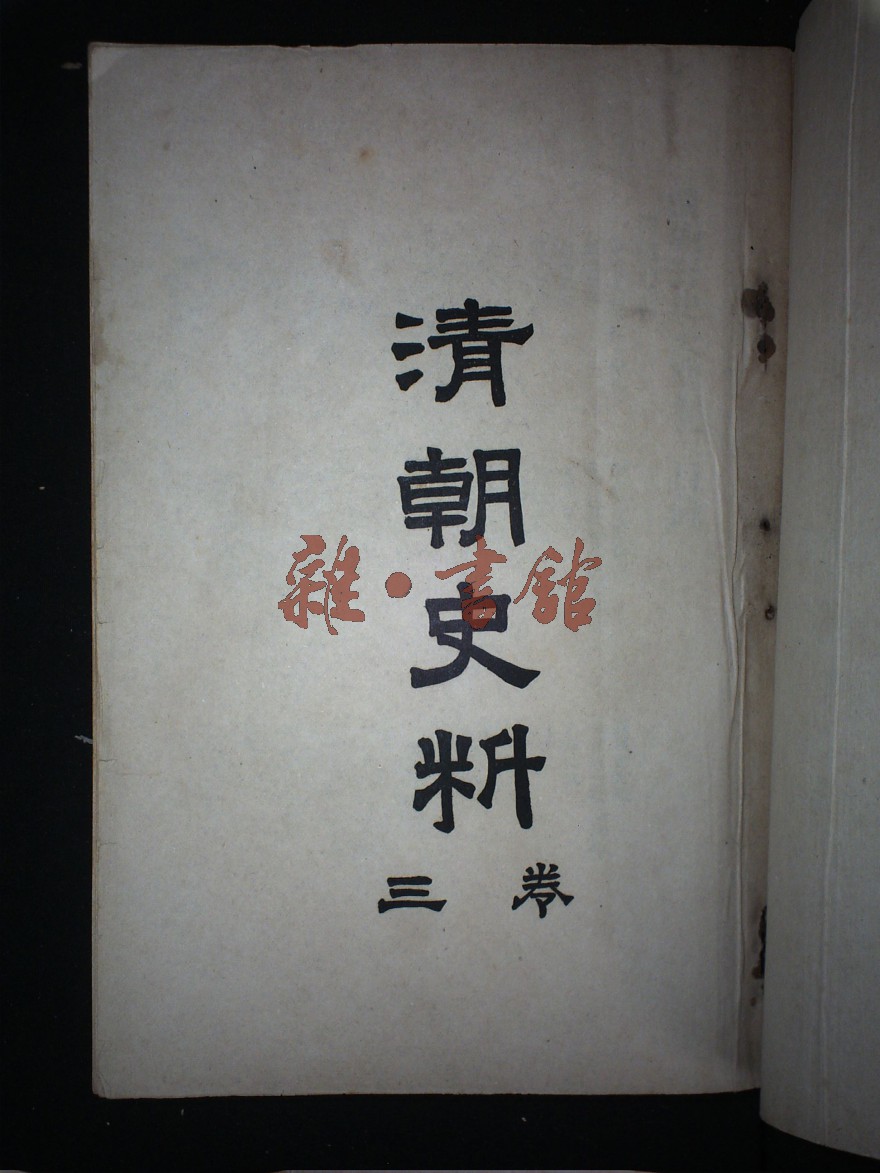 清朝史料
卷三
雜·書館